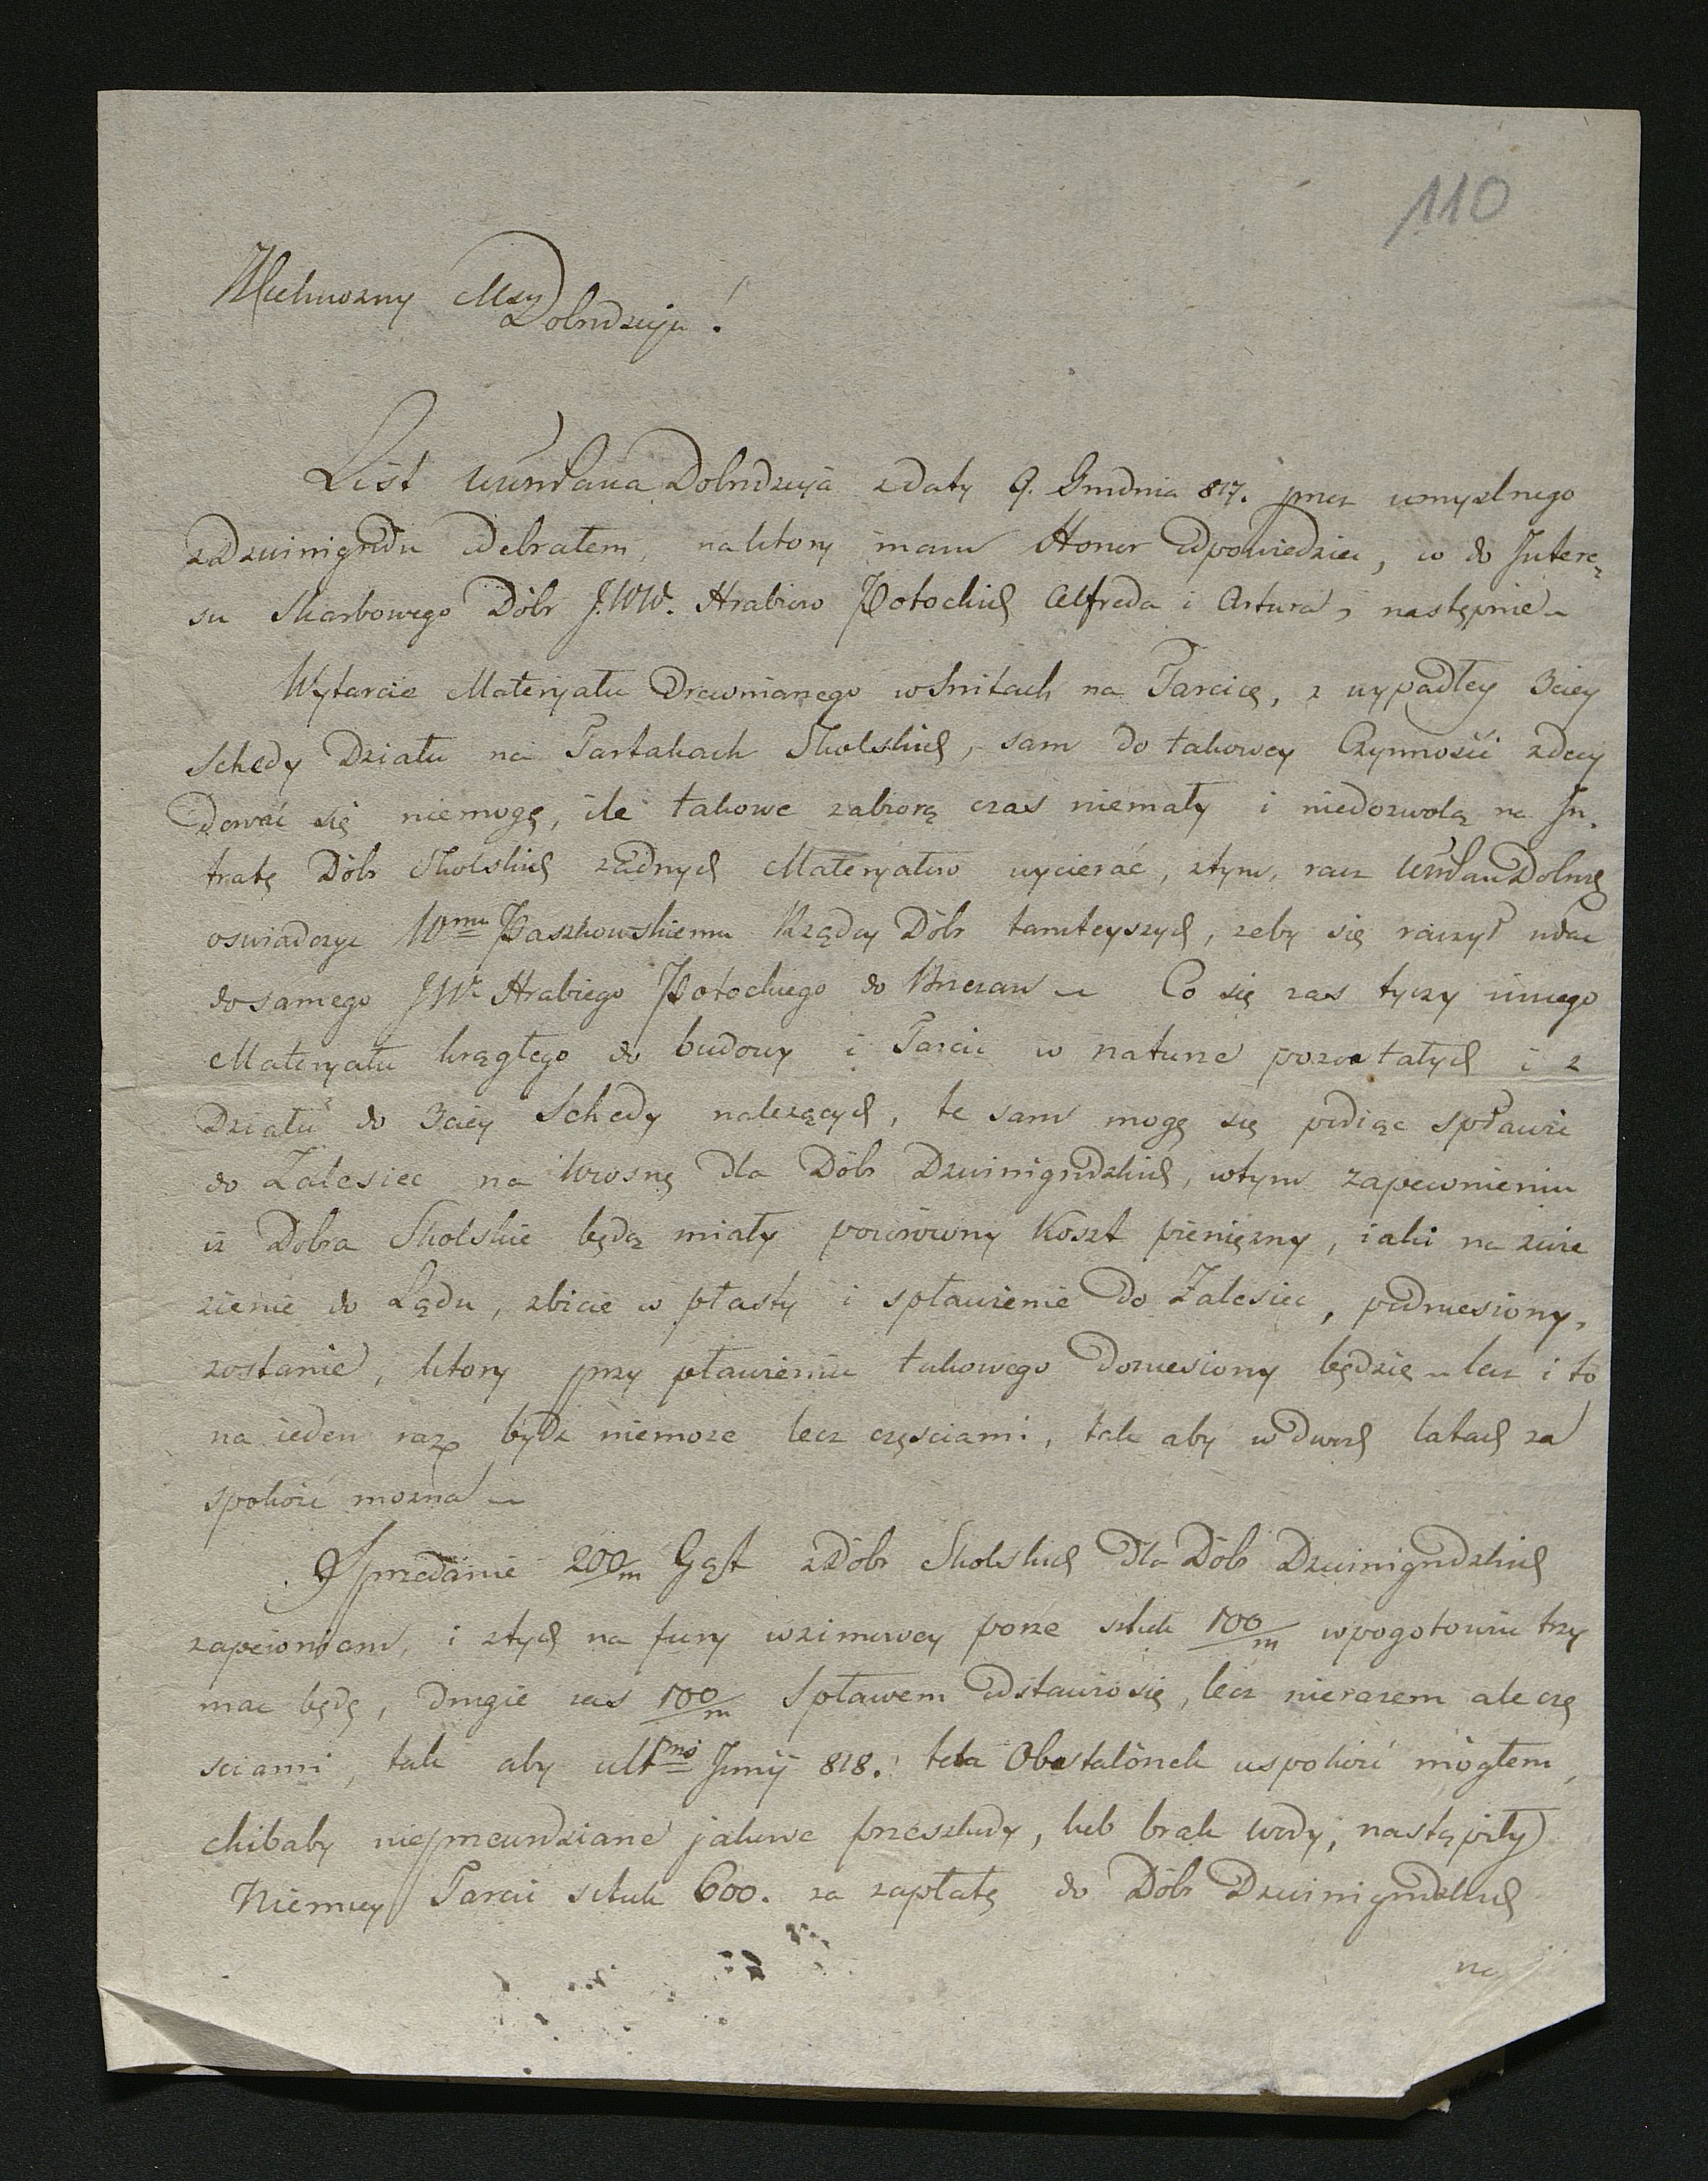 110
Wielmozny Msy
Dobrodzieju!
List WMPana Dobrodzieja z daty 9. Grudnia 817. przez umyslnego
z Dzwinigrodu odebrałem, na ktory mam Honor odpowiedziec, co do Intere,
su Skarbowego Dóbr J.WW. Hrabiow Potockich Alfreda i Artura, następnie
Wytarcie Materyału Drewnianego w Snitach na Tarcicę, z wypadłey 3ciey
Schedy Działu na Tartakach Skolskich, sam do takowey Czynności zdecy
dować się niemogę, ile takowe zabiorą czas niemały i niedozwolą na In,
tratę Dóbr Skolskich żadnych Materyałow wycierać, z tym, racz WMPan Dobrodz
oswiadczyc Wmu Paszkowskiemu Rządcy Dóbr tamteyszych, zeby się raczył udac
do samego JW. Hrabiego Potockiego do Brzezan Co się zas tyczy innego
Materyału krągłego do budowy i Tarcic w naturze pozostałych i z
Działu do 3ciey Schedy nalezących, te sam mogę się podiąc spławic
do Zalesiec na Wiosnę dla Dóbr Dzwinigrodzkich, w tym zapewnieniu
iz Dobra Skolskie będą miały powrocony Koszt pienięzny, iaki na zwie
zienie do Lądu, zbicie w płasty i spławienie do Zalesiec, podniesiony,
zostanie, ktory przy pławieniu takowego doniesiony będzie lecz i to
na ieden raz bydz niemoze lecz częsciami, tak aby w dwoch latach za
spokoić mozna
Sprzedanie 200/m Gąt z Dóbr Skolskich dla Dóbr Dzwinigrodzkich
zapewniam, i z tych na fury w zimowey porze sztuk 100/m w pogotowiu trzy
mac będę, drugie zas 100/m Spławem odstawią się, lecz nierazem ale czę
sciami, tak aby ultmo Junij 818. ten Obstalónek uspokoić mógłem,
chibaby nieprzewidziane jakowe przeszkody, lub brak wody, nastąpiły
Niemniey Tarcic sztuk 600. za zapłatę do Dóbr Dzwinigrodzkich
na